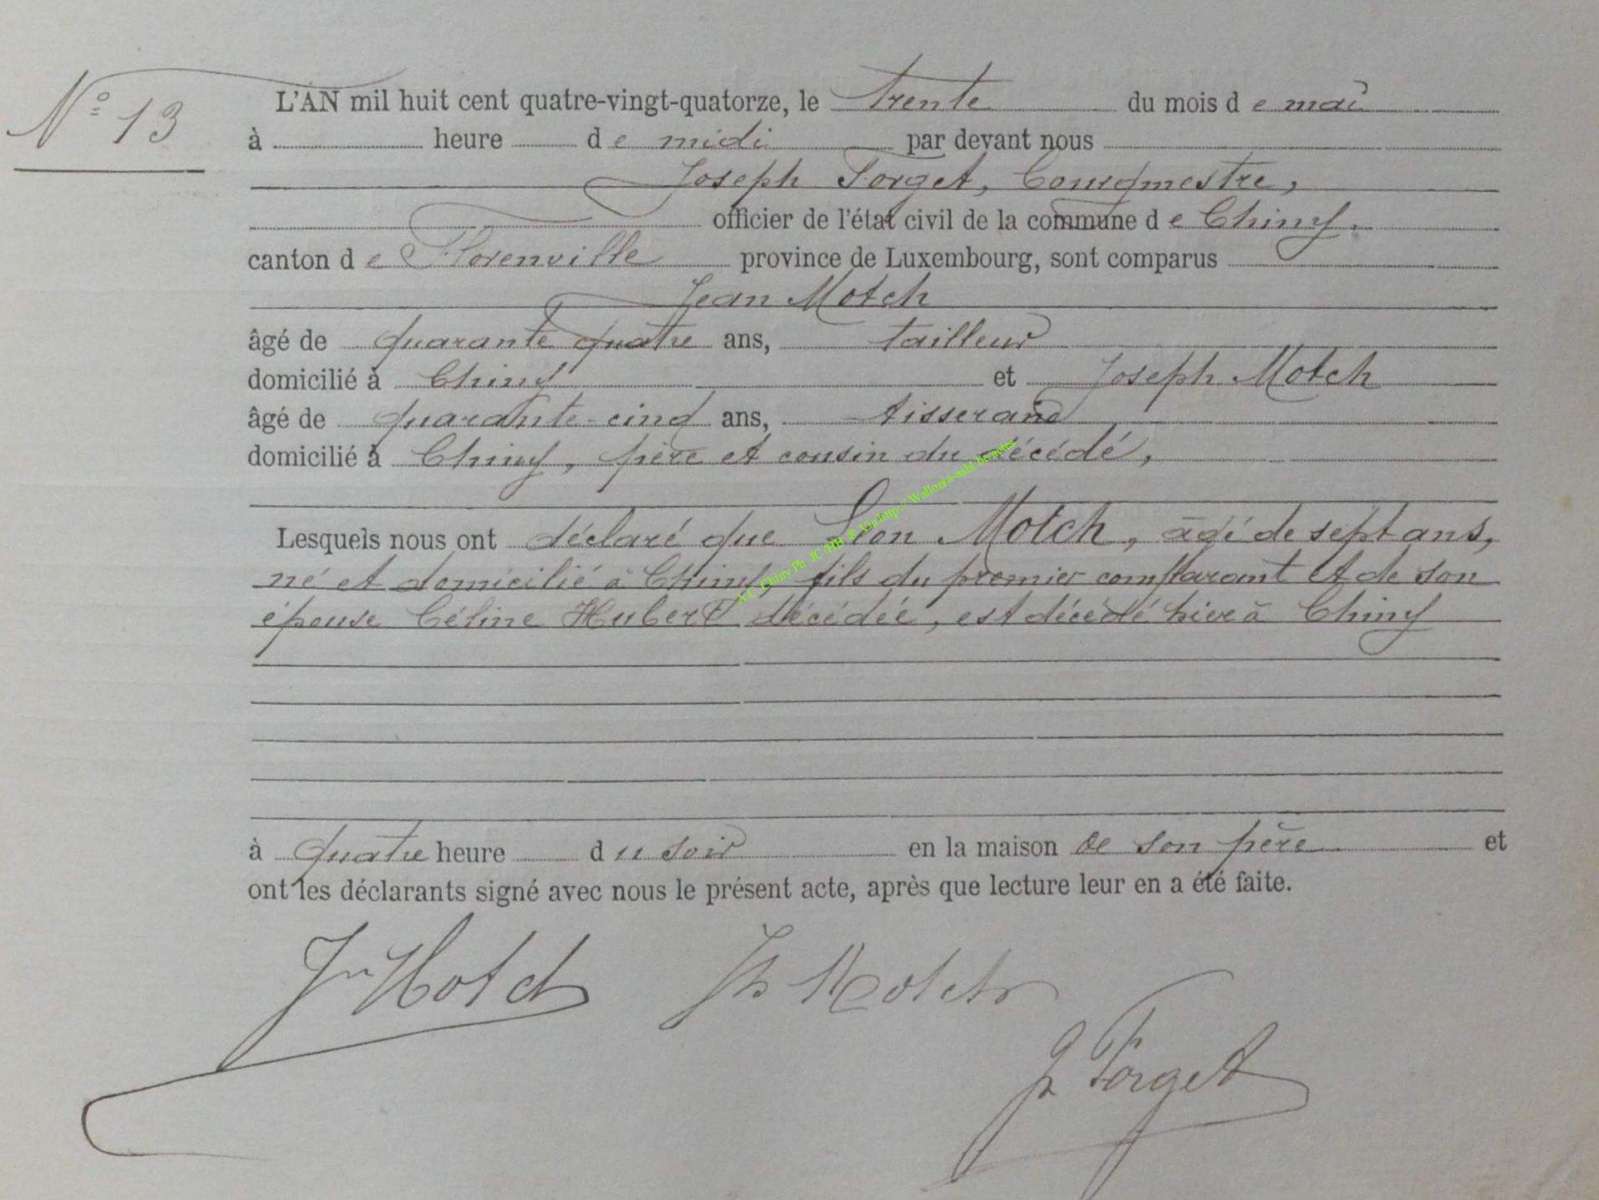 Nº 13
L'AN mil huit cent quatre-vingt-quatorze, le trente du mois de mai
à heure de midi par devant nous
Joseph Forget, Bourgmestre,
officier de l'état civil de la commune de Chiny.
canton de Florenville province de Luxembourg, sont comparus
Jean Motch
âgé de quarante quatre ans, tailleur
domicilié à Chiny et Joseph Motch
âgé de quarante-cinq ans, tisserand
domicilié à Chiny, père et cousin du décédé,
Lesquels nous ont déclaré que Léon Motch, âgé de sept ans,
né et domicilié à Chiny fils du premier comparant et de son
épouse Céline Hubert décédée, est décédé hier à Chiny
à quatre heure du soir en la maison de son père et
ont les déclarants signé avec nous le présent acte, après que lecture leur en a été faite.
Jn Motch Jh Motch
J Forget